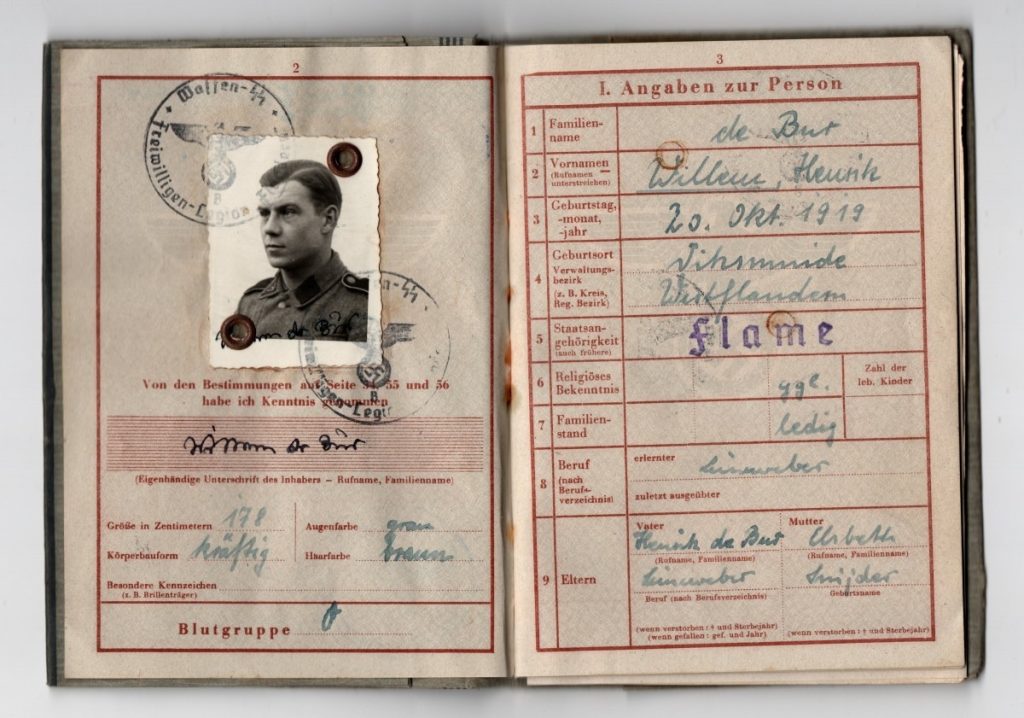 2
Waffen-SS
Freiwilligen-Legion
B
Waffen-SS
Freiwilligen-Legion
B
Von den Bestimmungen auf Seite 54, 55 und 56
habe ich Kenntnis genommen
Willem de Bur
(Eigenhändige Unterschrift des Inhabers – Rufname, Familienname)
Größe in Zentimetern 178
Augenfarbe grau
Körperbauform kräftig
Haarfarbe braun
Besondere Kennzeichen
(z. B. Brillenträger)
Blutgruppe
3
I. Angaben zur Person
1 Familien-
name
de Bur
2 Vornamen
(Rufnamen
unterstreichen)
Willem, Henrik
3 Geburtstag,
-monat,
-jahr
20. Okt. 1919
4 Geburtsort
Verwaltungs-
bezirk
(z. B. Kreis,
Reg. Bezirk)
Diksmuide
Westflandern
5 Staatsan-
gehörigkeit
(auch frühere)
Flame
6 Religiöses
Bekenntnis
ggl.
Zahl der
leb. Kinder
7 Familien-
stand
ledig
8 Beruf
(nach
Berufs-
verzeichnis)
erlernter
Leinweber
zuletzt ausgeübter
9 Eltern
Vater
Henrik de Bur
(Rufname, Familienname)
Leinweber
Beruf (nach Berufsverzeichnis)
(wenn verstorben: † und Sterbejahr)
(wenn gefallen: gef. und Jahr)
Mutter
(Rufname, Familienname)
Snijder
Geburtsname
(wenn verstorben: † und Sterbejahr)